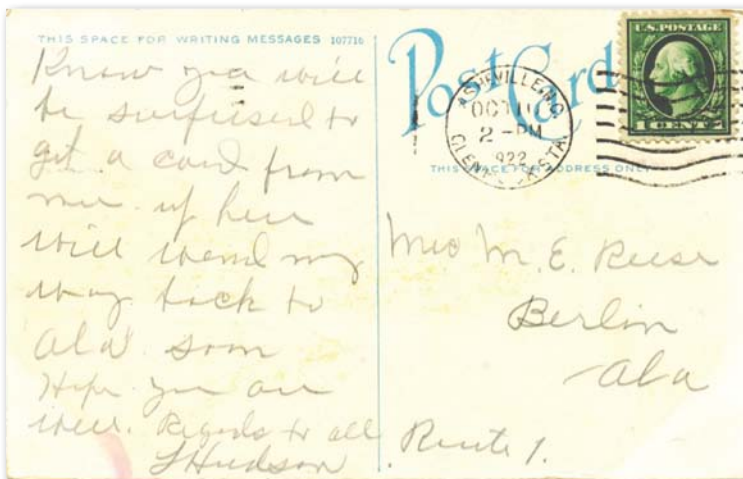 THIS SPACE FOR WRITING MESSAGES 107716
Know you will
be surprised to
get a card from
me up here
Will wend my
way back to
Ala. soon
Hope you are
well. Regards to all
L Hudson
Post Card
ASHEVILLE, N.C.
OCT 10
2 - PM
1922
STA.
U.S. POSTAGE
1 CENT 1
THIS SPACE FOR ADDRESS ONLY
Mrs M. E. Reese
Berlin
Ala
Route 1.